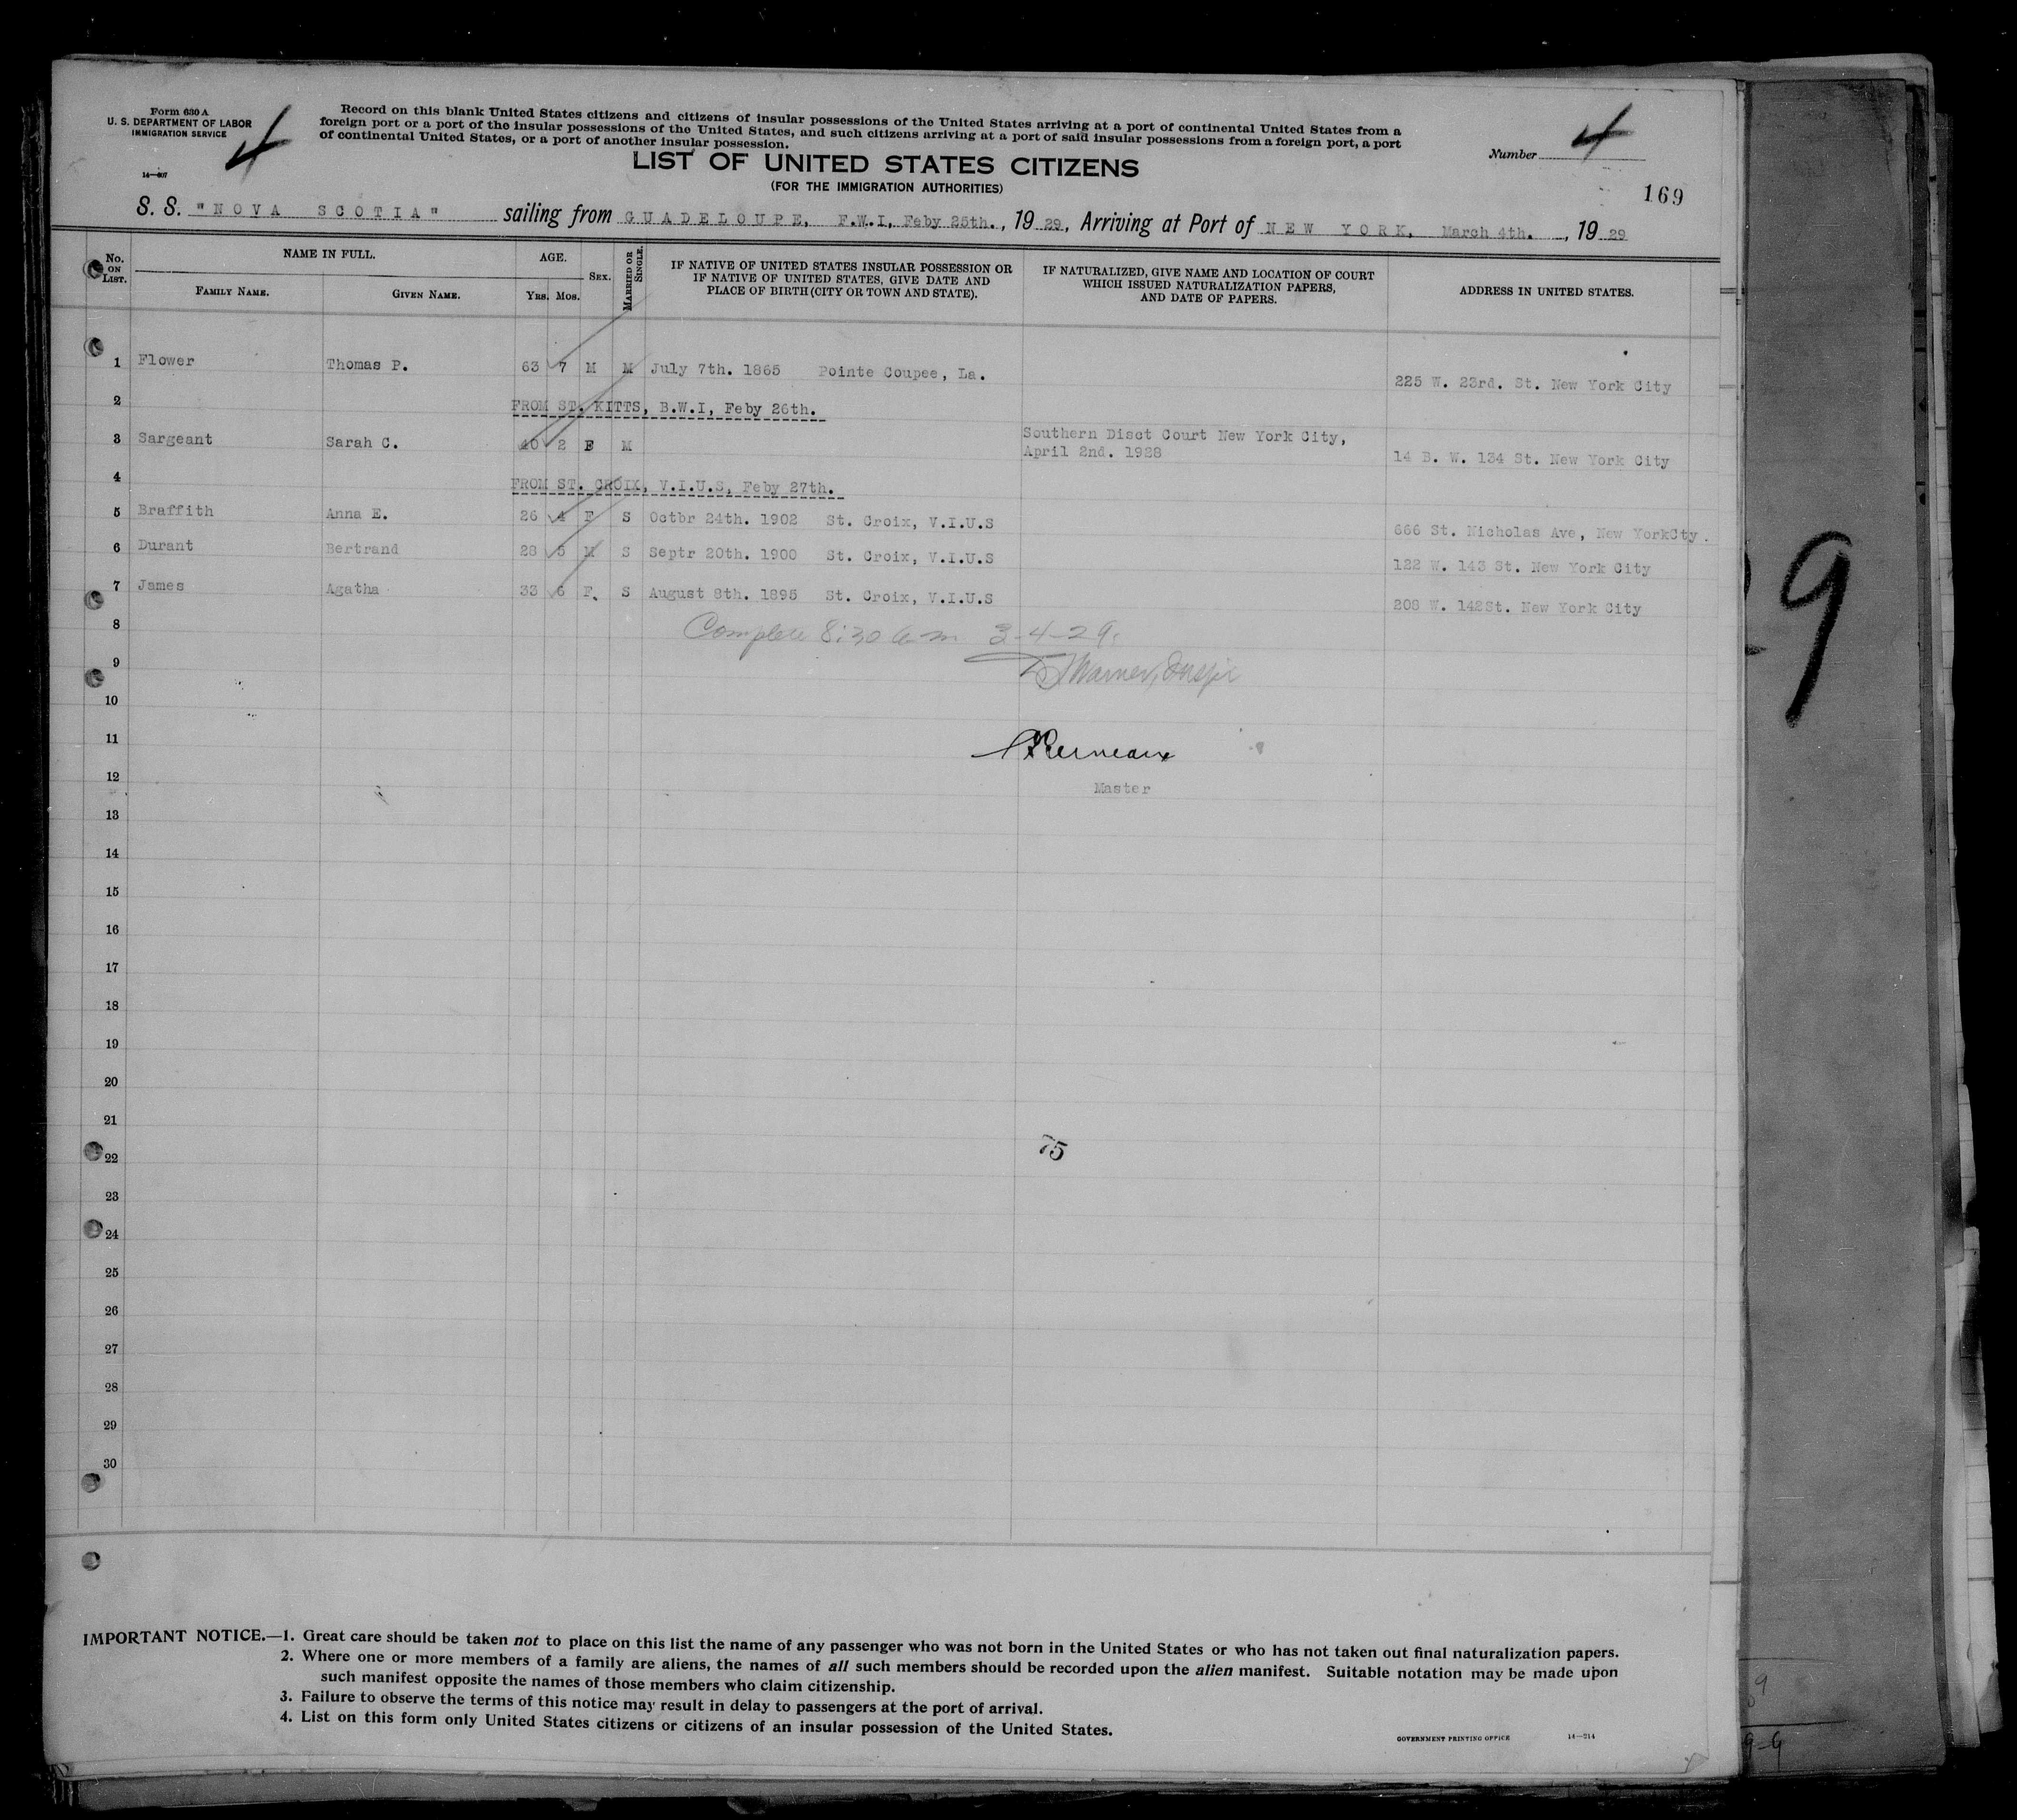 Form 630 A
U. S. DEPARTMENT OF LABOR
IMMIGRATION SERVICE
14—607
4
Record on this blank United States citizens and citizens of insular possessions of the United States arriving at a port of continental United States from a
foreign port or a port of the insular possessions of the United States, and such citizens arriving at a port of said insular possessions from a foreign port, a port
of continental United States, or a port of another insular possession.
Number 4
LIST OF UNITED STATES CITIZENS
(FOR THE IMMIGRATION AUTHORITIES)
169
S. S. "NOVA SCOTIA" sailing from GUADELOUPE, F.W.I, Feby 25th., 19 29, Arriving at Port of NEW YORK, March 4th. , 19 29
No. ON LIST. NAME IN FULL. AGE. SEX. MARRIED OR SINGLE. IF NATIVE OF UNITED STATES INSULAR POSSESSION OR IF NATIVE OF UNITED STATES, GIVE DATE AND PLACE OF BIRTH (CITY OR TOWN AND STATE). IF NATURALIZED, GIVE NAME AND LOCATION OF COURT WHICH ISSUED NATURALIZATION PAPERS, AND DATE OF PAPERS. ADDRESS IN UNITED STATES.
FAMILY NAME. GIVEN NAME. YRS. MOS.
1 Flower Thomas P. 63 7 M M July 7th. 1865 Pointe Coupee, La. 225 W. 23rd. St. New York City
2 FROM ST. KITTS, B.W.I, Feby 26th.
3 Sargeant Sarah C. 40 2 F M Southern Disct Court New York City, April 2nd. 1928 14 B. W. 134 St. New York City
4 FROM ST. CROIX, V.I.U.S, Feby 27th.
5 Braffith Anna E. 26 4 F S Octbr 24th. 1902 St. Croix, V.I.U.S 666 St. Nicholas Ave, New YorkCty.
6 Durant Bertrand 28 5 M S Septr 20th. 1900 St. Croix, V.I.U.S 122 W. 143 St. New York City
7 James Agatha 33 6 F. S August 8th. 1895 St. Croix, V.I.U.S 208 W. 142St. New York City
8 Complete 8:30 a-m 3-4-29.
9 Warner, Inspr
10
11
12 Master
13
14
15
16
17
18
19
20
21
75
22
23
24
25
26
27
28
29
30
9
IMPORTANT NOTICE.—1. Great care should be taken not to place on this list the name of any passenger who was not born in the United States or who has not taken out final naturalization papers.
2. Where one or more members of a family are aliens, the names of all such members should be recorded upon the alien manifest. Suitable notation may be made upon
such manifest opposite the names of those members who claim citizenship.
3. Failure to observe the terms of this notice may result in delay to passengers at the port of arrival.
4. List on this form only United States citizens or citizens of an insular possession of the United States.
GOVERNMENT PRINTING OFFICE 14—314